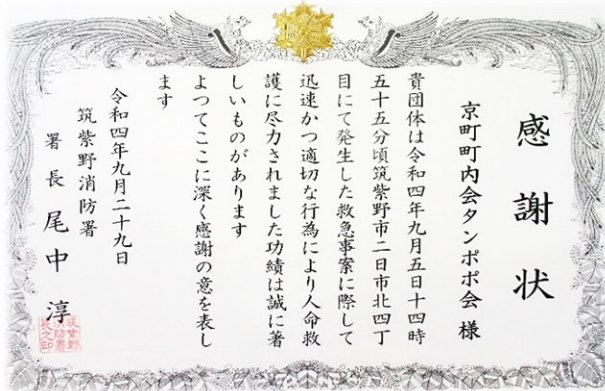 感謝状
京町町内会タンポポ会 様
貴団体は令和四年九月五日十四時
五十五分頃筑紫野市二日市北四丁
目にて発生した救急事案に際して
迅速かつ適切な行為により人命救
護に尽力されました功績は誠に著
しいものがあります
よつてここに深く感謝の意を表し
ます
令和四年九月二十九日
筑紫野消防署
署長 尾中 淳
筑紫野
消防署
長之印